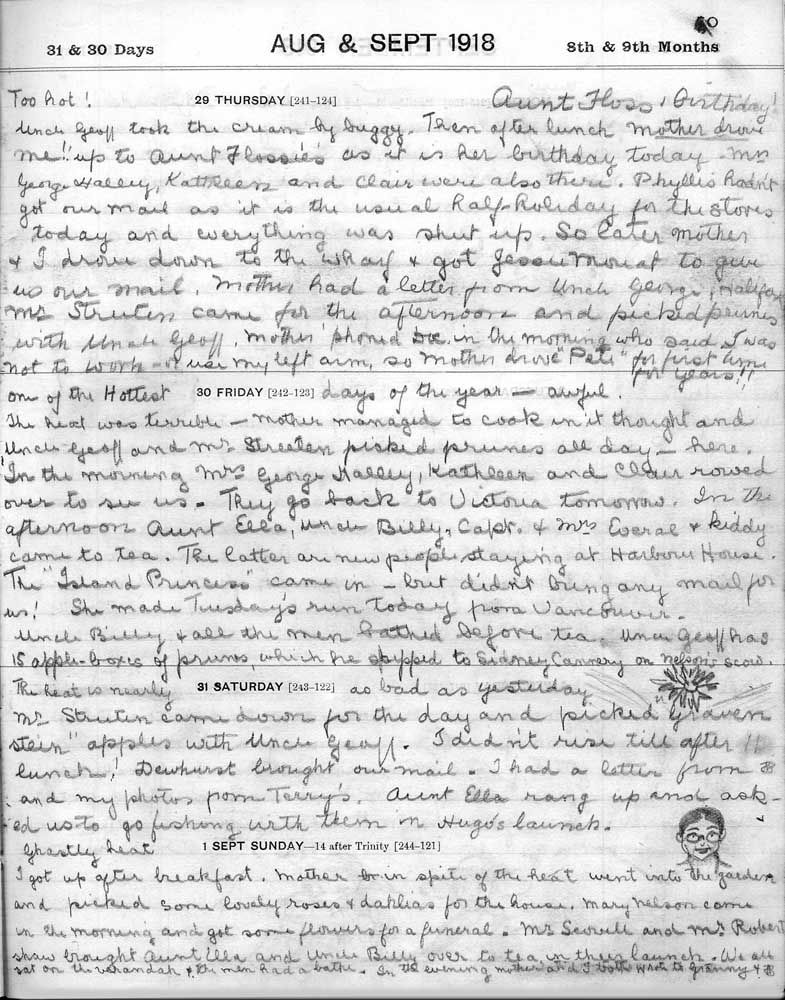 31 & 30 Days AUG & SEPT 1918 8th & 9th Months
Too hot! 29 THURSDAY [241-124] Aunt Floss' Birthday!
Uncle Geoff took the cream by buggy. Then after lunch mother drove
me!! up to Aunt Flossie's as it is her birthday today. Mrs
George Halley, Kathleen and Clair were also there. Phyllis hadn't
got our mail as it is the usual half-holiday for the stores
today and everything was shut up. So later mother
& I drove down to the wharf & got Jessie Mouat to give
us our mail. Mother had a letter from Uncle George, Halifax
Mr Streeten came for the afternoon and picked prunes
with Uncle Geoff. Mother 'phoned Doc. in the morning who said I was
not to work or use my left arm, so mother drove "Pete" for first time
for years!!
one of the Hottest 30 FRIDAY [242-123] days of the year — awful.
The heat was terrible — mother managed to cook in it thought and
Uncle Geoff and Mr Streeten picked prunes all day — here.
In the morning Mrs George Halley, Kathleen and Clair rowed
over to see us. They go back to Victoria tomorrow. In the
afternoon Aunt Ella, Uncle Billy, Capt. & Mrs Everal & kiddy
came to tea. The latter are new people staying at Harbour House.
The "Island Princess" came in — but didn't bring any mail for
us! She made Tuesday's run today from Vancouver.
Uncle Billy & all the men bathed before tea. Uncle Geoff has
15 apple-boxes of prunes, which he shipped to Sidney Cannery on Nelson's scow.
The heat is nearly 31 SATURDAY [243-122] as bad as yesterday
Mr Streeten came down for the day and picked "Graven
stein" apples with Uncle Geoff. I didn't rise till after
lunch! Dewhurst brought our mail. I had a letter from
and my photos from Terry's. Aunt Ella rang up and ask-
ed us to go fishing with them in Hugo's launch.
Ghastly heat 1 SEPT SUNDAY—14 after Trinity [244-121]
I got up after breakfast. Mother in spite of the heat went into the garden
and picked some lovely roses & dahlias for the house. Mary Nelson came
in the morning and got some flowers for a funeral. Mr Scovill and Mr Robert
shaw brought Aunt Ella and Uncle Billy over to tea in their launch. We all
sat on the verandah & the men had a bathe. In the evening mother and I both wrote to Granny &